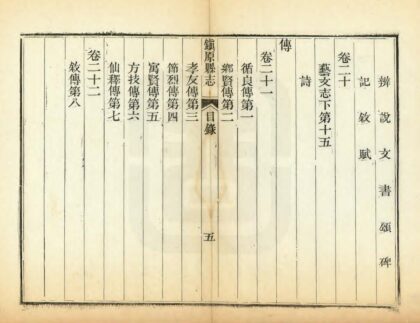 辨說文書頌碑
記敘賦
卷二十
藝文志下第十五
詩
傳
卷二十一
循良傳第一
鄉賢傳第二
鎮原縣志
目錄
五
孝友傳第三
節烈傳第四
寓賢傳第五
方技傳第六
仙釋傳第七
卷二十二
敘傳第八